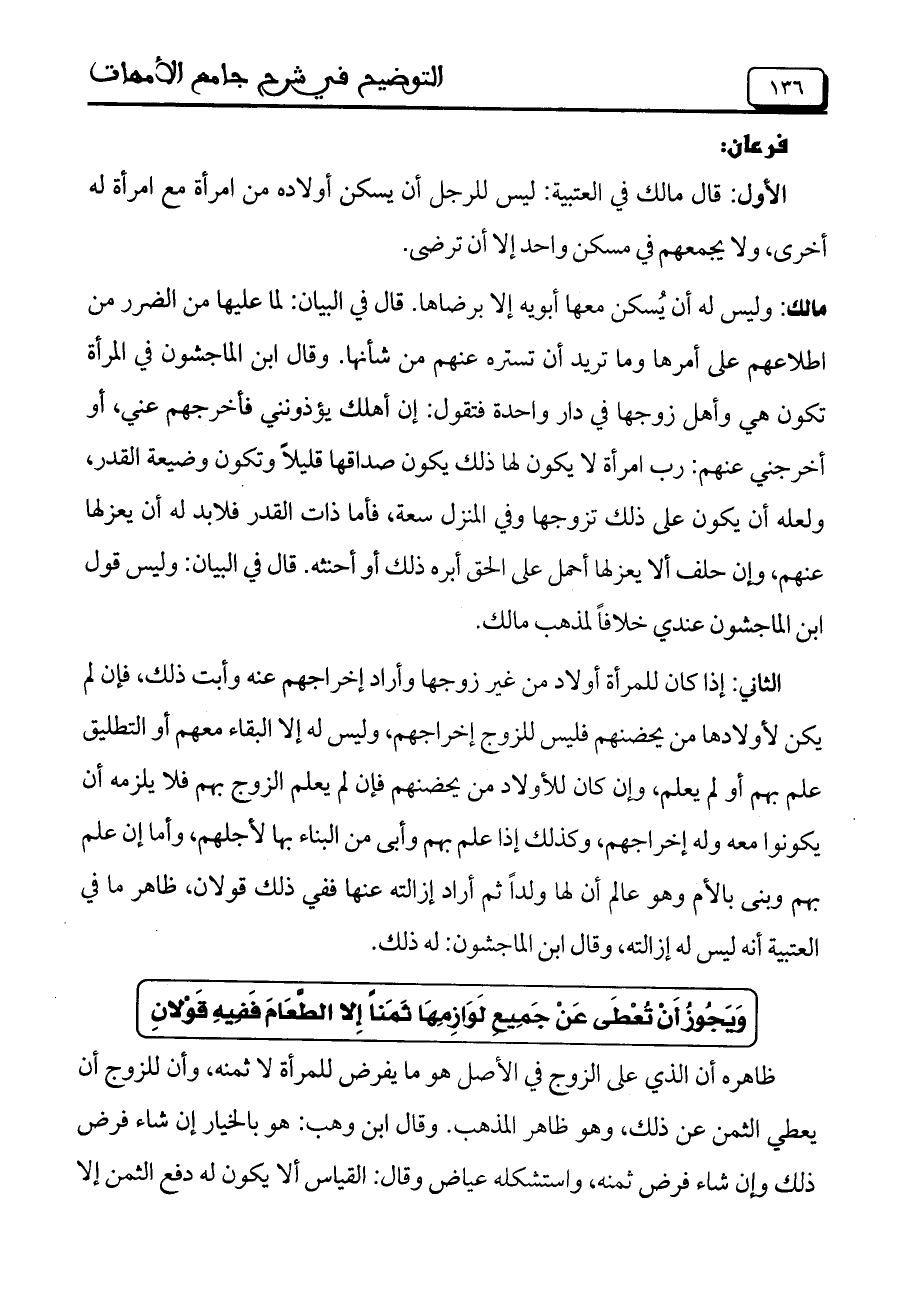 ١٣٦
التوضيح في شرح جامع الأمهات
فرعان:
الأول: قال مالك في العتبية: ليس للرجل أن يسكن أولاده من امرأة مع امرأة له
أخرى، ولا يجمعهم في مسكن واحد إلا أن ترضى.
مالك: وليس له أن يُسكن معها أبويه إلا برضاها. قال في البيان: لما عليها من الضرر من
اطلاعهم على أمرها وما تريد أن تستره عنهم من شأنها. وقال ابن الماجشون في المرأة
تكون هي وأهل زوجها في دار واحدة فتقول: إن أهلك يؤذونني فأخرجهم عني، أو
أخرجني عنهم: رب امرأة لا يكون لها ذلك يكون صداقها قليلاً وتكون وضيعة القدر،
ولعله أن يكون على ذلك تزوجها وفي المنزل سعة، فأما ذات القدر فلابد له أن يعزلها
عنهم، وإن حلف ألا يعزلها أحمل على الحق أبره ذلك أو أحنثه. قال في البيان: وليس قول
ابن الماجشون عندي خلافاً لمذهب مالك.
الثاني: إذا كان للمرأة أولاد من غير زوجها وأراد إخراجهم عنه وأبت ذلك، فإن لم
يكن لأولادها من يحضنهم فليس للزوج إخراجهم، وليس له إلا البقاء معهم أو التطليق
علم بهم أو لم يعلم، وإن كان للأولاد من يحضنهم فإن لم يعلم الزوج بهم فلا يلزمه أن
يكونوا معه وله إخراجهم، وكذلك إذا علم بهم وأبى من البناء بها لأجلهم، وأما إن علم
بهم وبنى بالأم وهو عالم أن لها ولداً ثم أراد إزالته عنها ففي ذلك قولان، ظاهر ما في
العتبية أنه ليس له إزالته، وقال ابن الماجشون: له ذلك.
وَيَجُوزُ أَنْ تُعْطَى عَنْ جَمِيعِ لَوَازِمِهَا ثَمَناً إِلا الطَّعَامَ فَفِيهِ قَوْلانِ
ظاهره أن الذي على الزوج في الأصل هو ما يفرض للمرأة لا ثمنه، وأن للزوج أن
يعطي الثمن عن ذلك، وهو ظاهر المذهب. وقال ابن وهب: هو بالخيار إن شاء فرض
ذلك وإن شاء فرض ثمنه، واستشكله عياض وقال: القياس ألا يكون له دفع الثمن إلا